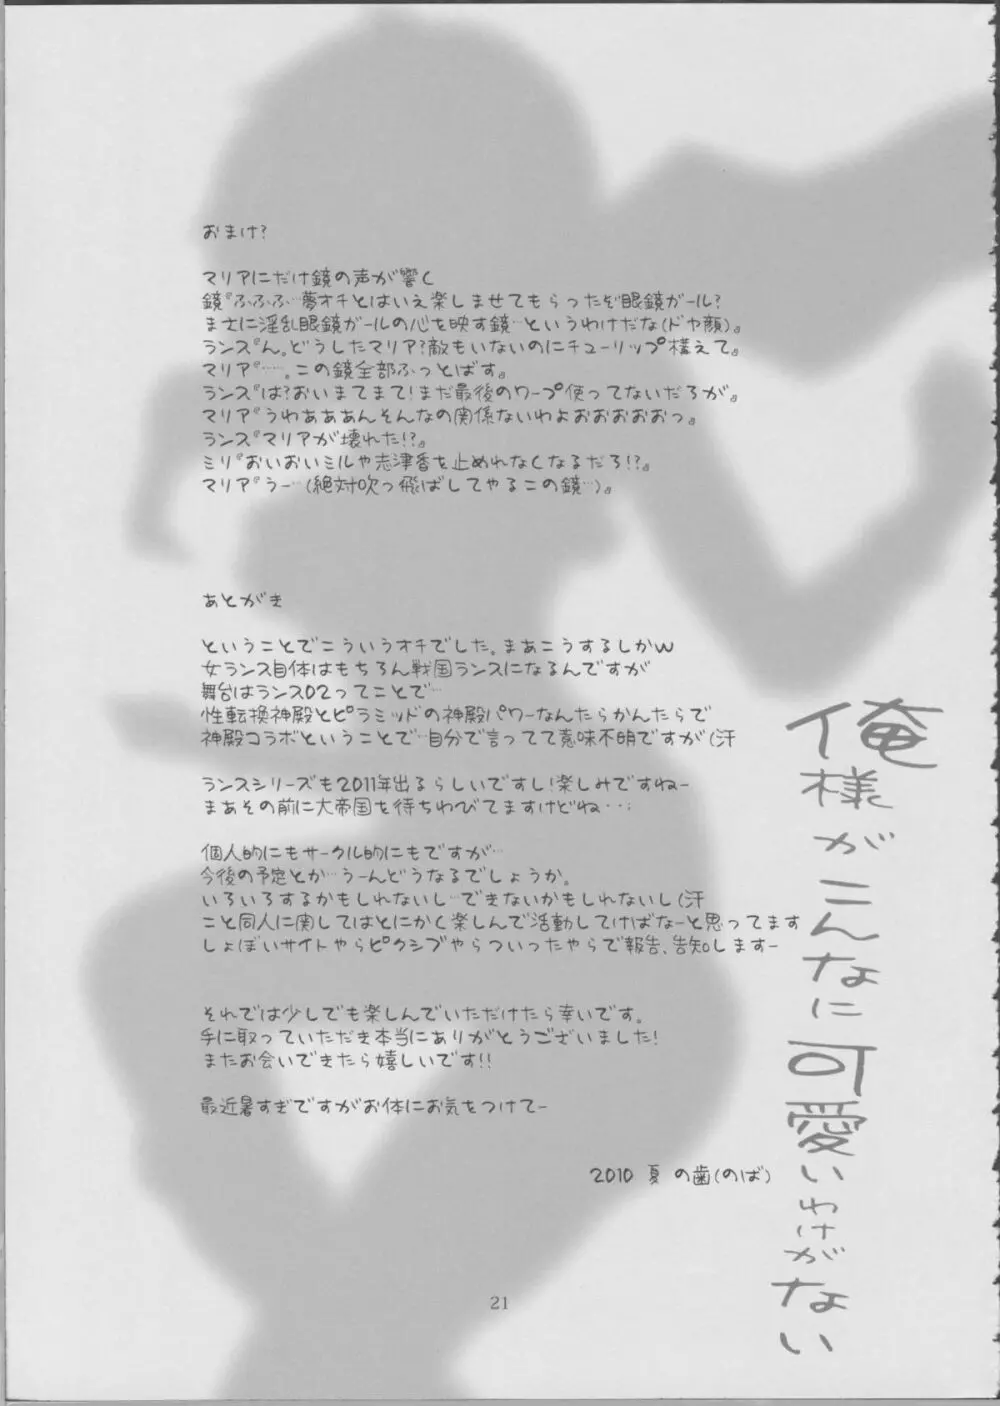 おまけ?
マリアにだけ鏡の声が響く
鏡『ふふふ…夢オチとはいえ楽しませてもらったぞ眼鏡ガール?
まさに淫乱眼鏡ガールの心を映す鏡…というわけだな(ドヤ顔)。』
ランス『ん。どうしたマリア?敵もいないのにチューリップ構えて。』
マリア『……。この鏡全部ふっとばす。』
ランス『は?おいまてまて!まだ最後のワープ使ってないだろが。』
マリア『うわあああんそんなの関係ないわよおおおおおっ。』
ランス『マリアが壊れた!?。』
ミリ『おいおいミルや志津香を止めれなくなるだろ!?。』
マリア『うー…(絶対吹っ飛ばしてやるこの鏡…)。』
あとがき
ということでこういうオチでした。まあこうするしかw
女ランス自体はもちろん戦国ランスになるんですが
舞台はランス02ってことで…
性転換神殿とピラミッドの神殿パワーなんたらかんたらで
神殿コラボということで…自分で言ってて意味不明ですが(汗
ランスシリーズも2011年出るらしいですし!楽しみですねー
まあその前に大帝国を待ちわびてますけどね・・;
個人的にもサークル的にもですが…
今後の予定とか…うーんどうなるでしょうか。
いろいろするかもしれないし…できないかもしれないし(汗
こと同人に関してはとにかく楽しんで活動してけばなーと思ってます
しょぼいサイトやらピクシブやらついったやらで報告、告知しますー
それでは少しでも楽しんでいただけたら幸いです。
手に取っていただき本当にありがとうございました!
またお会いできたら嬉しいです!!
最近暑すぎですがお体にお気をつけてー
2010 夏 の歯(のば)
俺様がこんなに可愛いわけがない
21